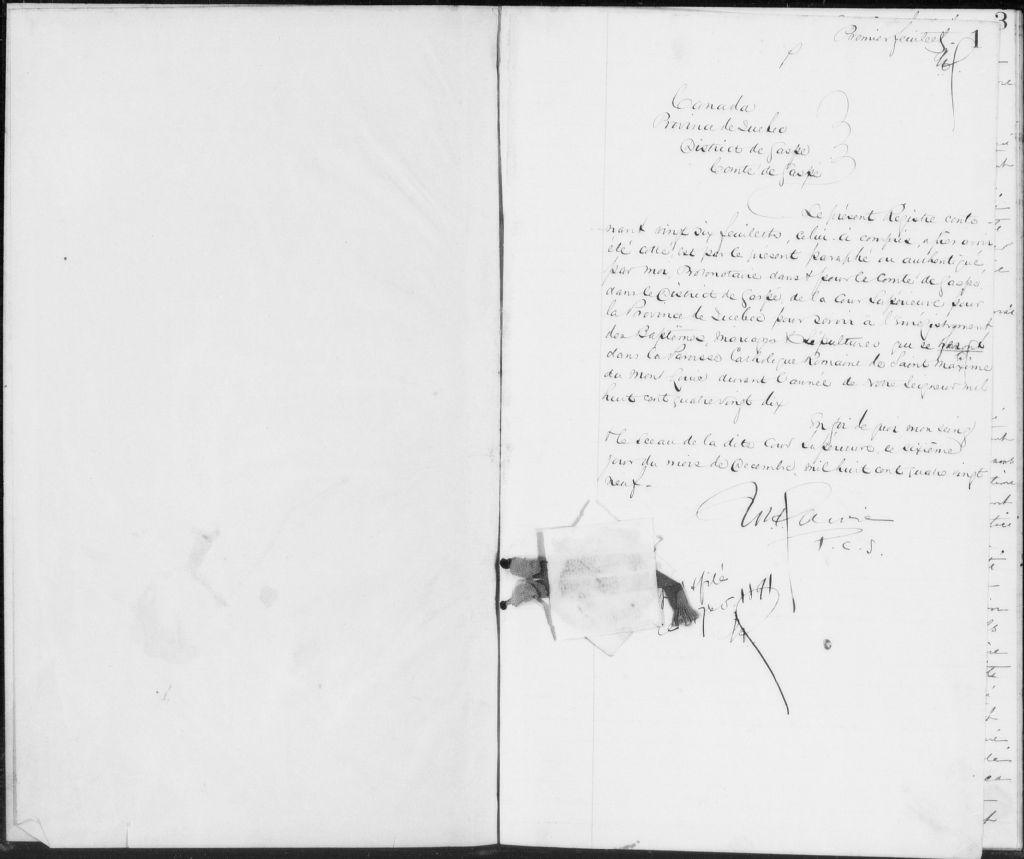 3
Premier feuillet
1
Canada
Province de Québec
District de Gaspé
Comté de Gaspé
Le présent Régistre conte
nant vingt six feuillets, celui-ci compris, après avoir
été coté, est par le présent paraphé ou authentiqué,
par moi Protonotaire dans & pour le Comté de Gaspé,
dans le District de Gaspé, de la Cour Supérieure pour
la Province de Québec pour servir à l'Enrégistrement
des Baptêmes, Mariages & Sépultures qui se feront
dans la Paroisse Catholique Romaine de Saint Maxime
du Mont Louis durant l'année de Notre Seigneur mil
huit cent quatre vingt dix
En foi de quoi mon seing
& le sceau de la dite Cour Supérieure, ce sixième
jour du mois de Décembre, mil huit cent quatre vingt
neuf.-
P. C. S.